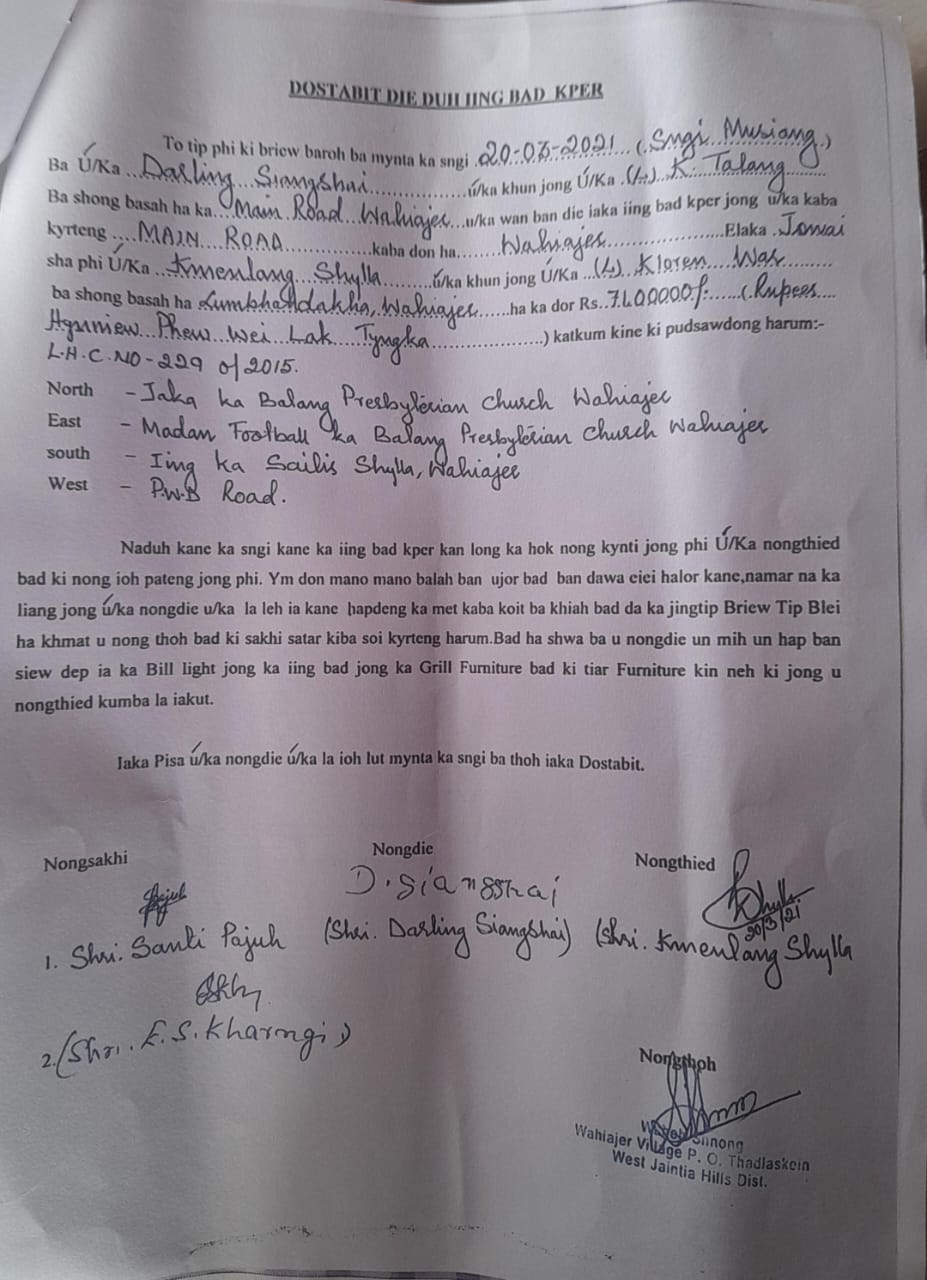 DOSTABIT DIE DUH IING BAD KPER
To tip phi ki briew baroh ba mynta ka sngi 20-03-2021 (Sngi Musiang)
Ba Ú/Ka Darling Siangshai ú/ka khun jong Ú/Ka (L) K. Talang
Ba shong basah ha ka Main Road Wahiajer u/ka wan ban die iaka iing bad kper jong u/ka kaba
kyrteng MAIN ROAD kaba don ha Wahiajer Elaka Jowai
sha phi Ú/Ka Kmenlang Shylla ú/ka khun jong Ú/Ka (L) Kloren War
ba shong basah ha Lumbhahdakha, Wahiajer ha ka dor Rs. 7100000/- (Rupees
Hynniew Phew Wei Lak Tyngka ) katkum kine ki pudsawdong harum:-
L.H.C.NO-229 of 2015.
North - Jaka ka Balang Presbyterian Church Wahiajer
East - Madan Football ka Balang Presbyterian Church Wahiajer
south - Iing ka Sailis Shylla, Wahiajer
West - P.W.D Road.
Naduh kane ka sngi kane ka iing bad kper kan long ka hok nong kynti jong phi Ú/Ka nongthied
bad ki nong ioh pateng jong phi. Ym don mano mano balah ban ujor bad ban dawa eiei halor kane,namar na ka
liang jong ú/ka nongdie u/ka la leh ia kane hapdeng ka met kaba koit ba khiah bad da ka jingtip Briew Tip Blei
ha khmat u nong thoh bad ki sakhi satar kiba soi kyrteng harum.Bad ha shwa ba u nongdie un mih un hap ban
siew dep ia ka Bill light jong ka iing bad jong ka Grill Furniture bad ki tiar Furniture kin neh ki jong u
nongthied kumba la iakut.
Iaka Pisa ú/ka nongdie ú/ka la ioh lut mynta ka sngi ba thoh iaka Dostabit.
Nongsakhi Nongdie Nongthied
D. siangshai
20/3/21
1. Shri. Santi Pajuh (Shri. Darling Siangshai) (Shri. Kmenlang Shylla
2. (Shri. E.S. Kharmgi)
Nongthoh
Shnong
Wahiajer Village P. O. Thadlaskein
West Jaintia Hills Dist.